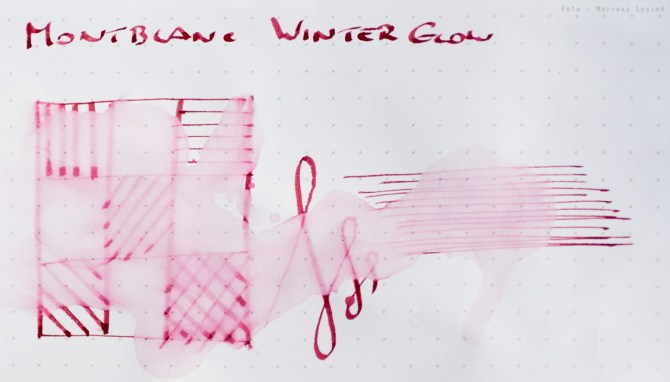 Foto - Mariusz Łysiak
MONTBLANC WINTER GLOW